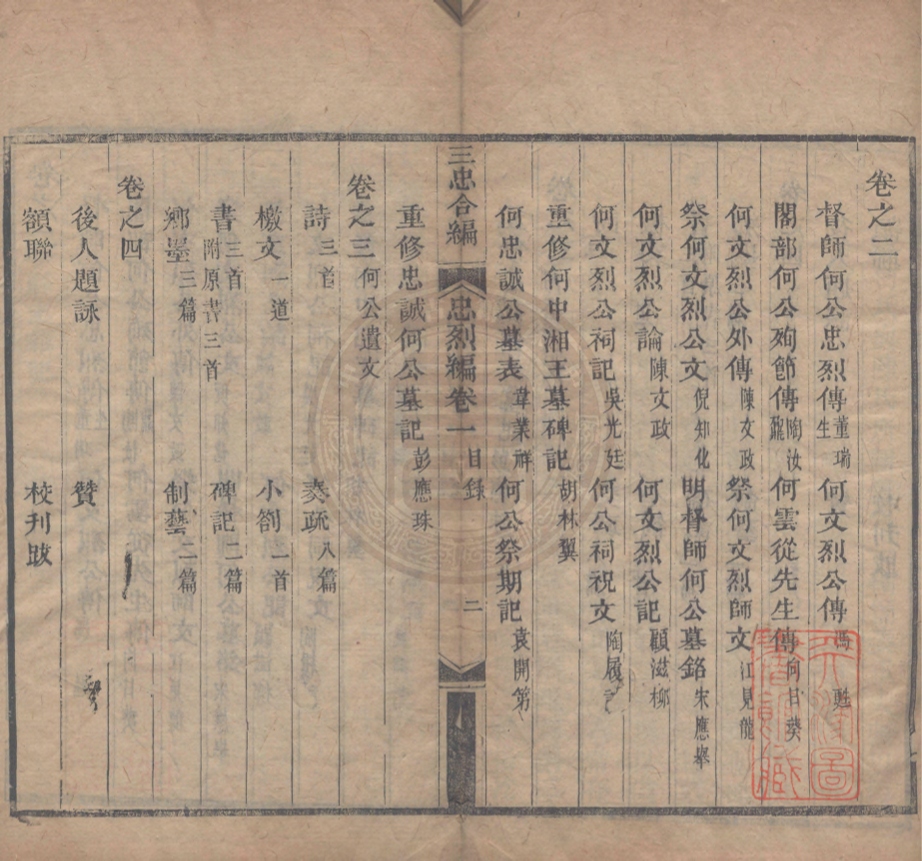 卷之二
督師何公忠烈傳 董瑞生 何文烈公傳 馮甦
閣部何公殉節傳 陶汝鼐 何雲從先生傳 向日葵
何文烈公外傳 陳文政 祭何文烈師文 江見龍
祭何文烈公文 倪知化 明督師何公墓銘 朱應舉
何文烈公論 陳文政 何文烈公記 顧滋柳
何文烈公祠記 吳光廷 何公祠祝文 陶履
重修何中湘王墓碑記 胡林翼
何忠誠公墓表 韋業祥 何公祭期記 袁開第
三忠合編 忠烈編卷一 目錄 二
重修忠誠何公墓記 彭應珠
卷之三 何公遺文
詩 三首 奏疏 八篇
檄文 一道 小劄 一首
書 三首 附原書三首 碑記 二篇
鄉墨 三篇 制藝 二篇
卷之四
後人題詠 贊
額聯 校刊跋
天津圖書館藏